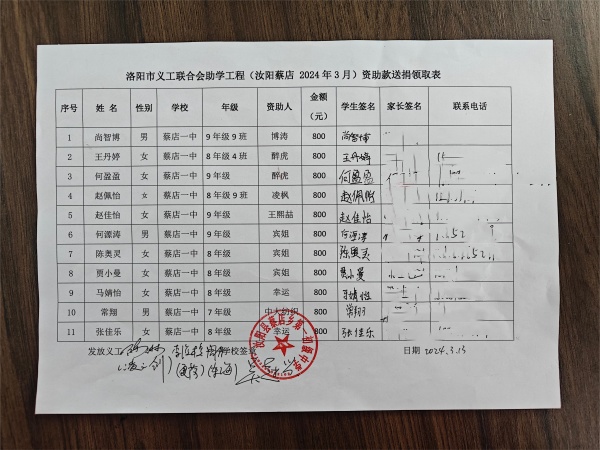 洛阳市义工联合会助学工程（汝阳蔡店 2024 年 3 月）资助款送捐领取表
序号 姓 名 性别 学校 年级 资助人 金额（元） 学生签名 家长签名 联系电话
1 尚智博 男 蔡店一中 9 年级 9 班 博涛 800 尚智博
2 王丹婷 女 蔡店一中 8 年级 4 班 醉虎 800 王丹婷
3 何盈盈 女 蔡店一中 9 年级 醉虎 800 何盈盈
4 赵佩怡 女 蔡店一中 8 年级 9 班 凌枫 800 赵佩怡
5 赵佳怡 女 蔡店一中 9 年级 王熙喆 800 赵佳怡
6 何源涛 男 蔡店一中 9 年级 宾姐 800 何源涛
7 陈奥灵 女 蔡店一中 8 年级 宾姐 800 陈奥灵
8 贾小曼 女 蔡店一中 8 年级 宾姐 800 贾小曼
9 马婧怡 女 蔡店一中 8 年级 幸运 800 马婧怡
10 常翔 男 蔡店一中 7 年级 中大纺织 800 常翔
11 张佳乐 女 蔡店一中 8 年级 幸运 800 张佳乐
发放义工 学校签 日期 2024.3.13